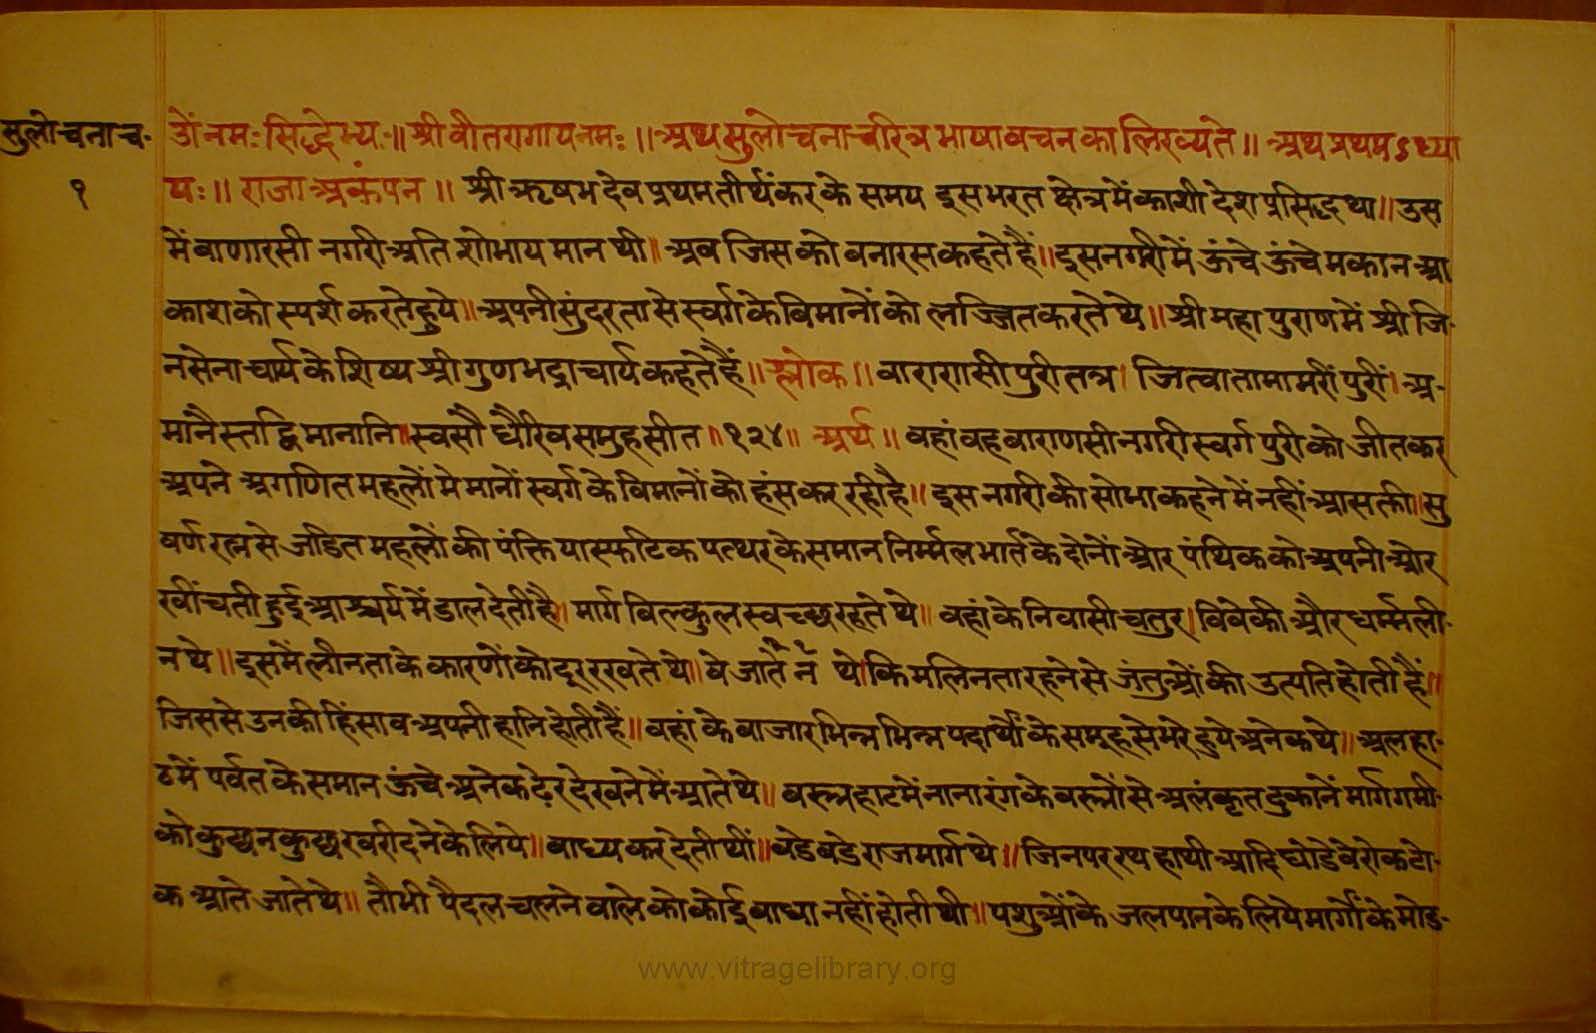 सुलोचनाच॰
१
ॐ नमः सिद्धेभ्यः॥ श्री वीतरागाय नमः॥ अथ सुलोचना चरित्र भाषा वचनका लिख्यते॥ अथ प्रथमऽध्या
यः॥ राजा अकंपन॥ श्री ऋषभ देव प्रथम तीर्थंकर के समय इस भरत क्षेत्र में काशी देश प्रसिद्ध था॥ उस
में वाणारसी नगरी अति शोभाय मान थी॥ अब जिस को बनारस कहते हैं॥ इस नगरी में ऊंचे ऊंचे मकान आ
काश को स्पर्श करते हुये॥ अपनी सुंदरता से स्वर्ग के विमानों को लज्जित करते थे॥ श्री महा पुराण में श्री जि-
नसेनाचार्य के शिष्य श्री गुणभद्राचार्य कहते हैं॥ श्लोक॥ वाराणसी पुरी तत्र। जित्वा तामामरीं पुरीं। अ-
मानैस्तद्विमानानि॥ स्वसौधैरिव समुहसीत॥१२४॥ अर्थ॥ वहां वह वाराणसी नगरी स्वर्ग पुरी को जीत कर
अपने अगणित महलों मे मानों स्वर्ग के विमानों को हंस कर रही है॥ इस नगरी की सोभा कहने में नहीं आसक्ती॥ सु
वर्ण रत्न से जडित महलों की पंक्ति या स्फटिक पत्थर के समान निर्म्मल मार्त के दोनों ओर पंथिक को अपनी ओर
खींचती हुई आश्चर्य में डाल देती है। मार्ग विल्कुल स्वच्छ रहते थे॥ वहां के निवासी चतुर। विवेकी और धर्म्म ली-
न थे॥ इसमें लीनता के कारणों को दूर रखते थे॥ वे जातै न थे। कि मलिनता रहने से जंतुओं की उत्पति होती हैं॥
जिससे उनकी हिंसा व अपनी हानि होती हैं॥ वहां के वाजार भिन्न भिन्न पदार्थों के समूह से भरे हुये अनेक थे॥ अलहा-
ठमें पर्वत के समान ऊंचे अनेक ढेर देखने में आते थे॥ वस्त्र हाट में नाना रंग के वस्त्रों से अलंकृत दुकानें मार्ग गमी-
को कुछ न कुछ खरीदने के लिये॥ वाध्य कर देती थीं॥ बडे बडे राज मार्ग थे॥ जिन पर रथ हाथी आदि घोडे वेरोक टो-
क आते जाते थे॥ तौभी पैदल चलने वाले को कोई बाधा नहीं होती थी॥ पशुओं के जल पान के लिये मार्गों के मोड-
www.vitragelibrary.org